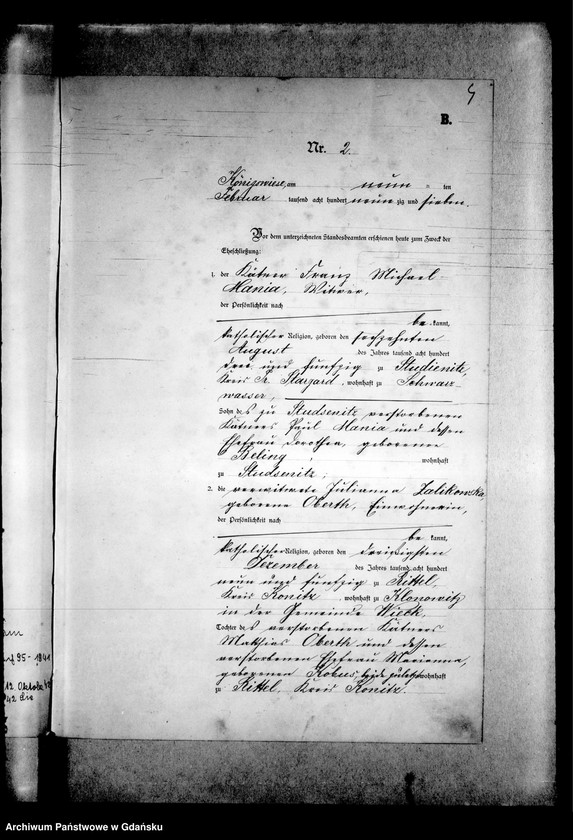 B.
Nr. 2.
Königswiese, am neun ten
Februar tausend acht hundert neunzig und sieben.
Vor dem unterzeichneten Standesbeamten erschienen heute zum Zweck der
Eheschließung:
1. der Kätner Franz Michael
Mania, Witwer,
der Persönlichkeit nach
be kannt,
katholischer Religion, geboren den sechzehnten
August des Jahres tausend acht hundert
drei und fünfzig zu Studsenitz,
Kreis Pr. Stargard, wohnhaft zu Schwarz-
wasser,
Sohn des zu Studsenitz verstorbenen
Kätners Paul Mania und dessen
Ehefrau Dorothea, geborenen
Beling, wohnhaft
zu Studsenitz;
2. die verwitwete Julianna Zalikowska,
geborene Oberth, Einwohnerin,
der Persönlichkeit nach
be kannt,
katholischer Religion, geboren den dreißigsten
Dezember des Jahres tausend acht hundert
neun und fünfzig zu Rittel,
Kreis Konitz, wohnhaft zu Klonowitz
in der Gemeinde Wieck,
Tochter des verstorbenen Kätners
Mathias Oberth und dessen
verstorbenen Ehefrau Marianna,
geborenen Kobus, beide zuletzt wohnhaft
zu Rittel, Kreis Konitz.
95 - 1941
12. Oktober
Archiwum Państwowe w Gdańsku